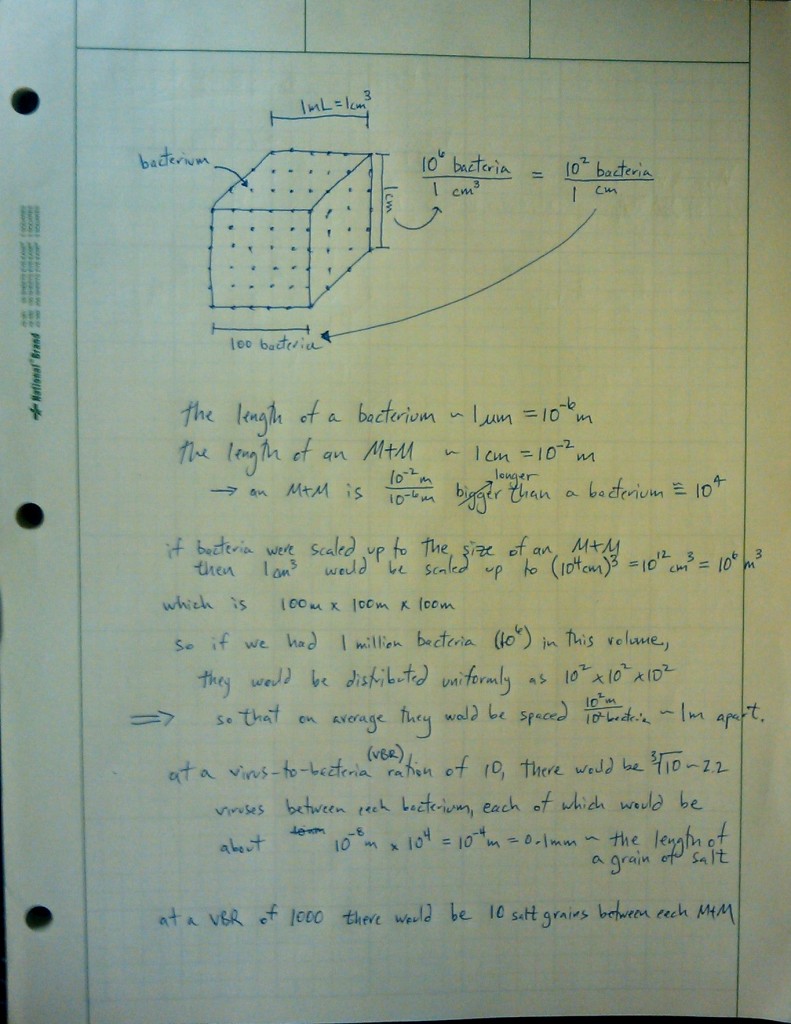 1mL = 1cm³
bacterium
1cm
10⁶ bacteria / 1 cm³ = 10² bacteria / 1 cm
100 bacteria
National® Brand
the length of a bacterium ~ 1 um = 10⁻⁶ m
the length of an M+M ~ 1 cm = 10⁻² m
→ an M+M is 10⁻² m / 10⁻⁶ m bigger longer than a bacterium ≡ 10⁴
if bacteria were scaled up to the size of an M+M
then 1 cm³ would be scaled up to (10⁴cm)³ = 10¹² cm³ = 10⁶ m³
which is 100m x 100m x 100m
so if we had 1 million bacteria (10⁶) in this volume,
they would be distributed uniformly as 10² x 10² x 10²
⇒ so that on average they wold be spaced 10² m / 10² bacteria ~ 1m apart.
at a virus-to-bacteria (VBR) ration of 10, there would be ³√10 ~ 2.2
viruses between each bacterium, each of which would be
about 10⁻⁸ m x 10⁴ = 10⁻⁴ m = 0.1mm ~ the length of
a grain of salt
at a VBR of 1000 there would be 10 salt grains between each M+M